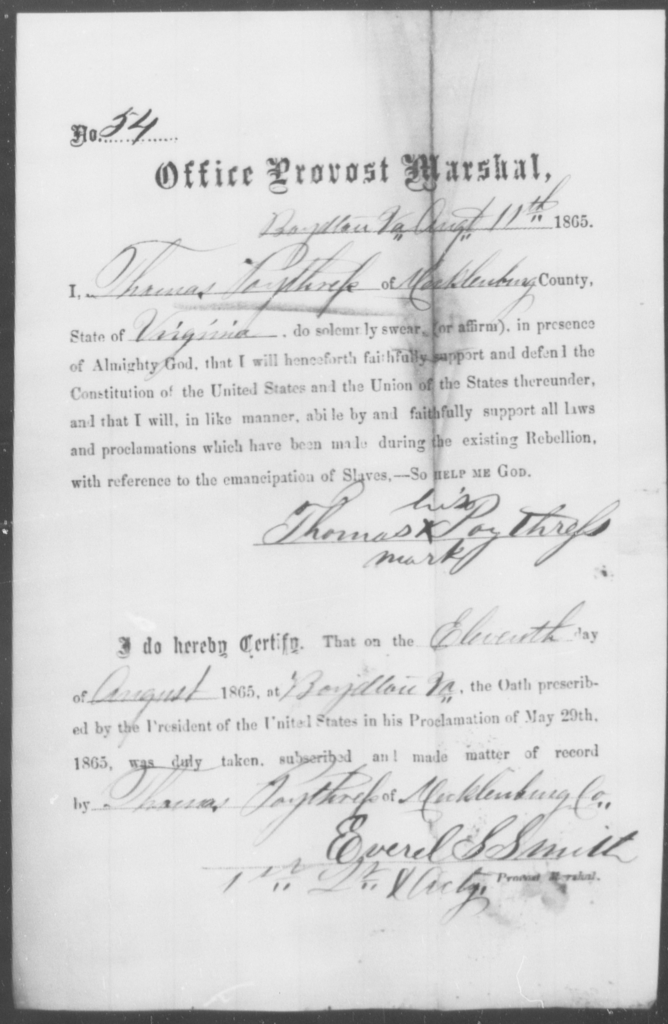 No. 54
Office Provost Marshal,
Boydton Va Augt 11th 1865.
I, Thomas Poythress of Mecklenburg County,
State of Virginia, do solemnly swear, (or affirm), in presence
of Almighty God, that I will henceforth faithfully support and defend the
Constitution of the United States and the Union of the States thereunder,
and that I will, in like manner, abide by and faithfully support all laws
and proclamations which have been made during the existing Rebellion,
with reference to the emancipation of Slaves,—So HELP ME GOD.
his
Thomas X Poythress
mark
I do hereby Certify. That on the Eleventh day
of August 1865, at Boydton Va, the Oath prescrib-
ed by the President of the United States in his Proclamation of May 29th,
1865, was duly taken, subscribed and made matter of record
by Thomas Poythress of Mecklenburg Co.,
Everel S Smith
1st Lt & Actg. Provost Marshal.